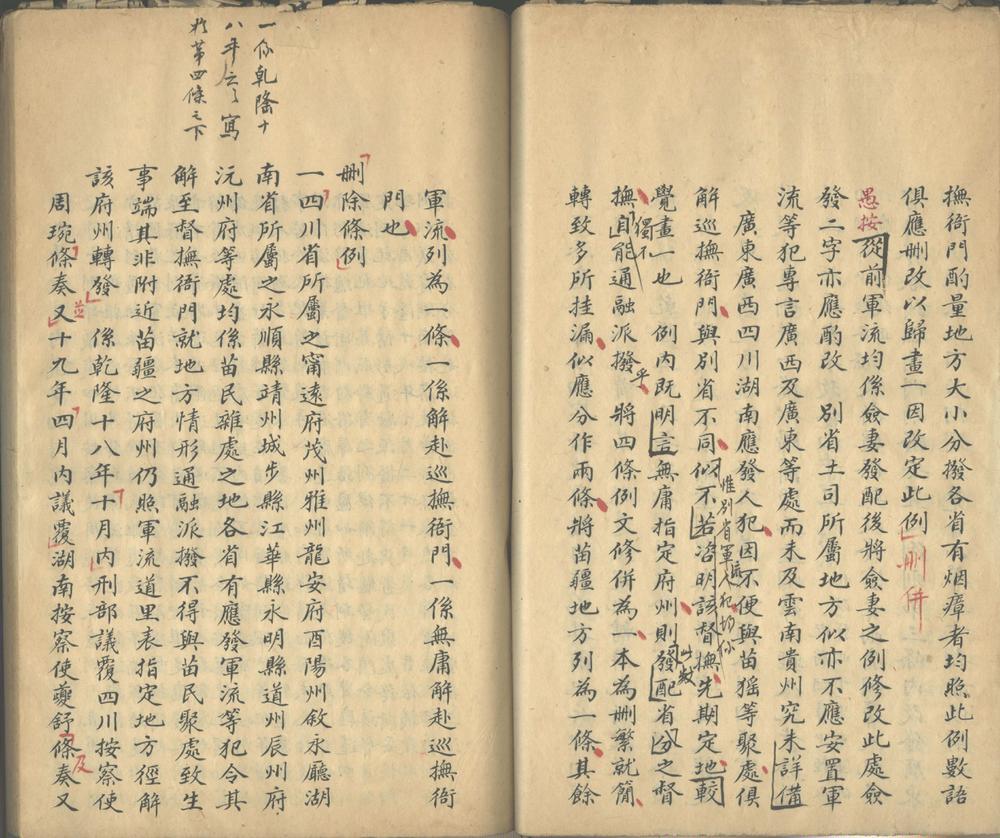 撫衙門酌量地方大小分撥各省有烟瘴者均照此例數語
俱應刪改以歸畫一因改定此例刪併
愚按從前軍流均係僉妻發配後將僉妻之例修改此處僉
發二字亦應酌改別省土司所屬地方似亦不應安置軍
流等犯專言廣西及廣東等處而未及雲南貴州究未詳備
廣東廣西四川湖南應發人犯因不便與苗猺等聚處俱
惟別省軍流人犯均係
解巡撫衙門與別省不同似不若咨明該督撫先期定地較
覺畫一也例內既明言無庸指定府州則發配省分之督
此數
獨
撫自能通融派撥乎將四條例文修併為一本為刪繁就簡
轉致多所挂漏似應分作兩條將苗疆地方列為一條其餘
一係乾隆十
八年云云寫
於第四條之下
軍流列為一條一係解赴巡撫衙門一係無庸解赴巡撫衙
門也
刪除條例
一四川省所屬之甯遠府茂州雅州龍安府酉陽州敘永廳湖
南省所屬之永順縣靖州城步縣江華縣永明縣道州辰州府
沅州府等處均係苗民雜處之地各省有應發軍流等犯令其
解至督撫衙門就地方情形通融派撥不得與苗民聚處致生
事端其非附近苗疆之府州仍照軍流道里表指定地方徑解
該府州轉發係乾隆十八年十月內刑部議覆四川按察使
周琬條奏並又十九年四月內議覆湖南按察使夔舒條奏及又